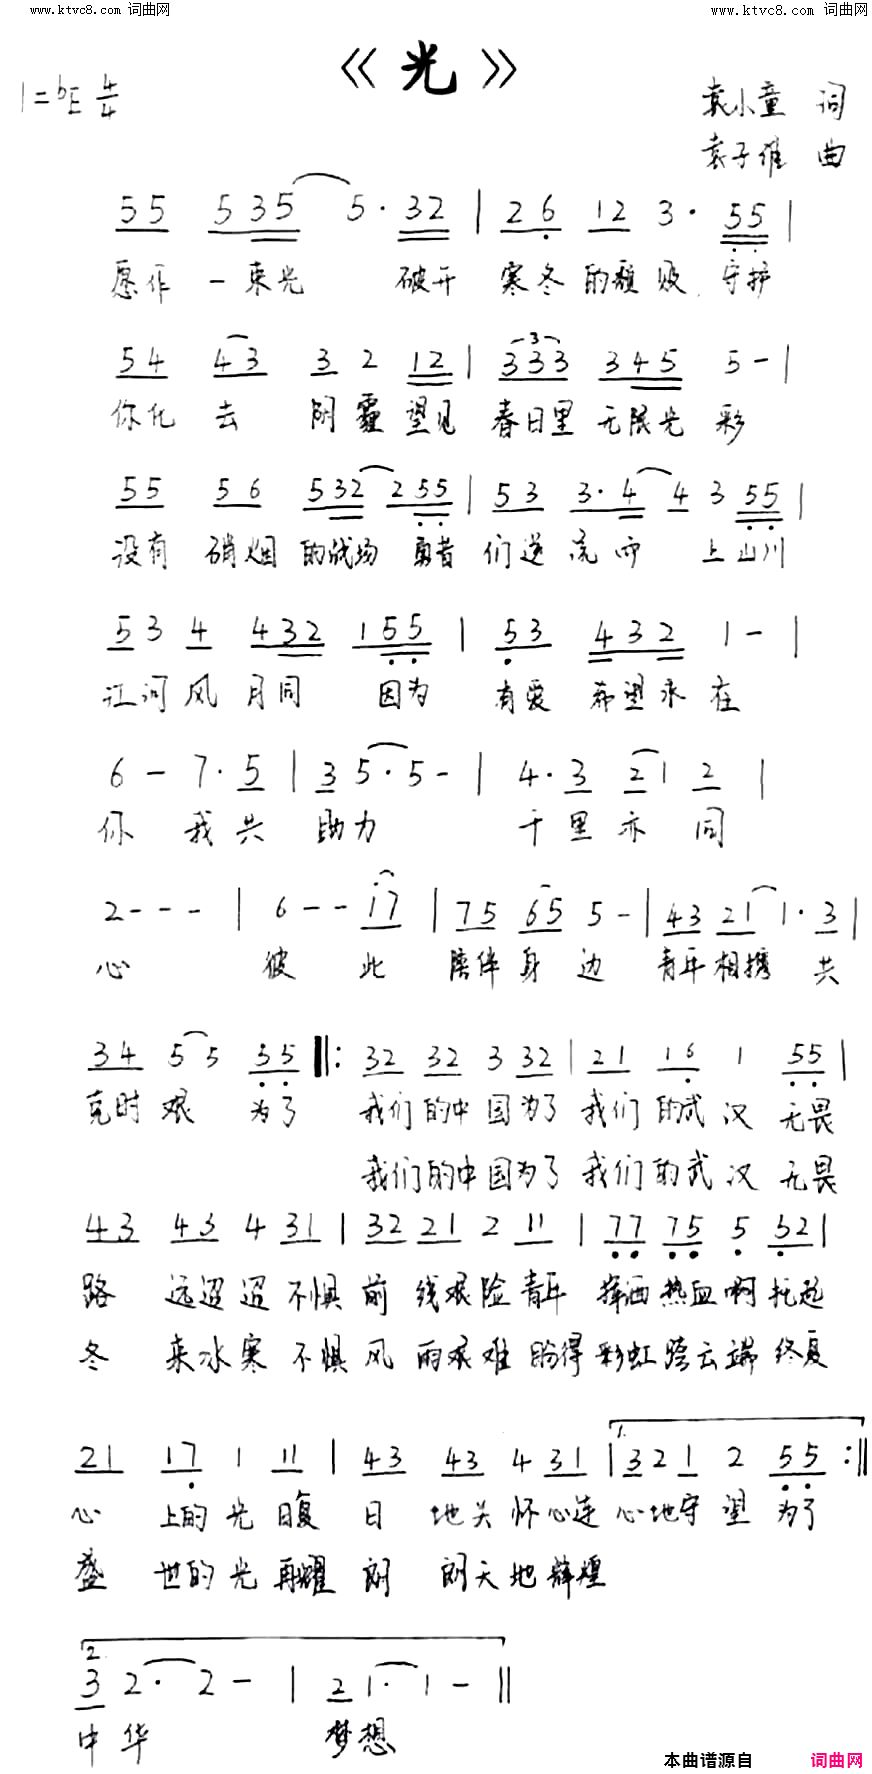 www.ktvc8.com 词曲网 www.ktvc8.com 词曲网
《光》
1=bE 4/4
袁小童 词
袁子雄 曲
55 535 5· 32 | 26 12 3· 55 |
愿作 一束光 破开 寒冬的颓败 守护
54 43 3 2 12 | 333 345 5 - |
你化 去 阴霾望见 春日里无限光 彩
55 56 532 255 | 53 3· 4 4 3 55 |
没有 硝烟 的战场 勇者 们逆流而 上山川
53 4 432 155 | 53 432 1 - |
江河风月同 因为 有爱 希望永在
6 - 7· 5 | 3 5· 5 - | 4· 3 21 2 |
你 我共 助力 千里亦 同
2 - - - | 6 - - 17 | 75 65 5 - | 43 21 1· 3 |
心 彼 此 陪伴身 边 青年相携 共
34 5 5 55 ‖: 32 32 3 32 | 21 16 1 55 |
克时艰 为了 我们的中国为了 我们的武汉 无畏
我们的中国为了 我们的武汉 无畏
43 43 4 31 | 32 21 2 11 | 77 75 5 52 |
路 远迢迢不惧前 线艰险青年 挥洒热血啊托起
冬 来冰寒 不惧风 雨艰难盼得 彩虹跨云端 终复
21 17 1 11 | 43 43 4 31 | 1. 32 1 2 55 :‖
心 上的光日复 日 地关怀心连 心地守望 为了
盛 世的光再耀 朗 朗天地辉煌
2. 3 2· 2 - | 2 1· 1 - ‖
中华 梦想
本曲谱源自 词曲网